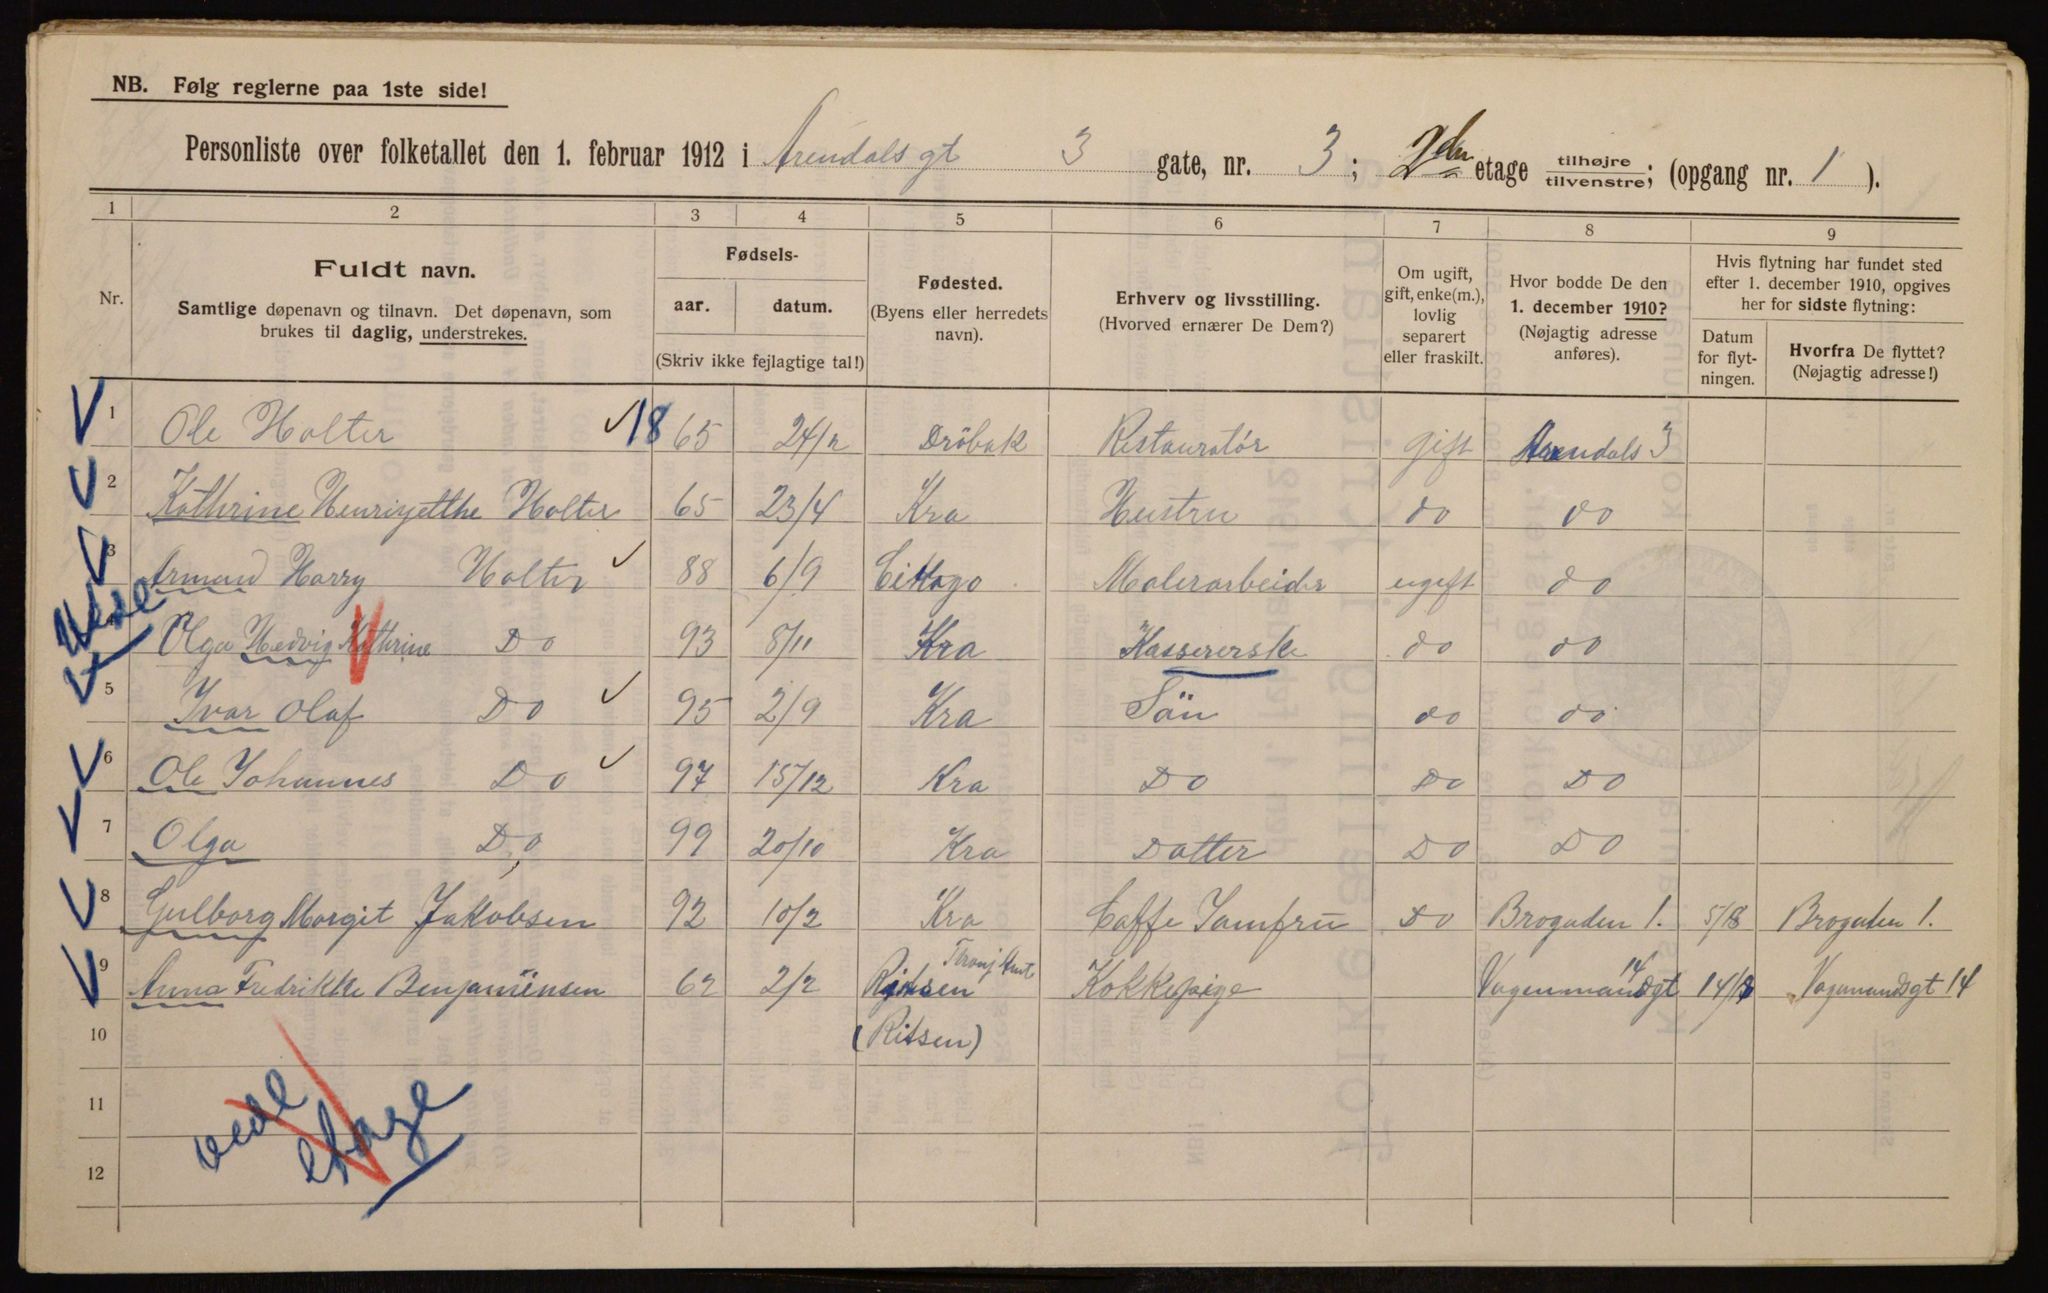 NB. Følg reglerne paa 1ste side!
Personliste over folketallet den 1. februar 1912 i Arendals gt 3 gate, nr. 3; 2den etage tilhøjre/tilvenstre; (opgang nr. 1 ).
1 2 3 4 5 6 7 8 9
Nr.
Fuldt navn.
Samtlige døpenavn og tilnavn. Det døpenavn, som
brukes til daglig, understrekes.
Fødsels-
aar. datum.
(Skriv ikke fejlagtige tal!)
Fødested.
(Byens eller herredets
navn).
Erhverv og livsstilling.
(Hvorved ernærer De Dem?)
Om ugift,
gift, enke(m.),
lovlig
separert
eller fraskilt.
Hvor bodde De den
1. december 1910?
(Nøjagtig adresse
anføres).
Hvis flytning har fundet sted
efter 1. december 1910, opgives
her for sidste flytning:
Datum
for flyt-
ningen.
Hvorfra De flyttet?
(Nøjagtig adresse!)
1 Ole Holter 18 65 24/2 Dröbak Restauratör gift Arendals 3
2 Kathrine Henriyetthe Holter 65 23/4 Kra Hustru do do
3 Arman Harry Holter 88 6/9 Cikago Malerarbeider ugift do
4 Olga Hedvig Kathrine Do 93 8/11 Kra Kassererske do do
5 Ivar Olaf Do 95 2/9 Kra Sön do do
6 Ole Johannes Do 97 15/12 Kra Do Do Do
7 Olga Do 99 20/10 Kra Datter Do Do
8 Gulborg Margit Jakobsen 92 10/2 Kra Caffe Jomfru Do Brogaden 1. 5/18 Brogaden 1.
9 Anna Fredrikke Benjaminsen 62 2/2 Kokkepige 14 14/12 14
10 (Ritsen)
11
12
vede
etage